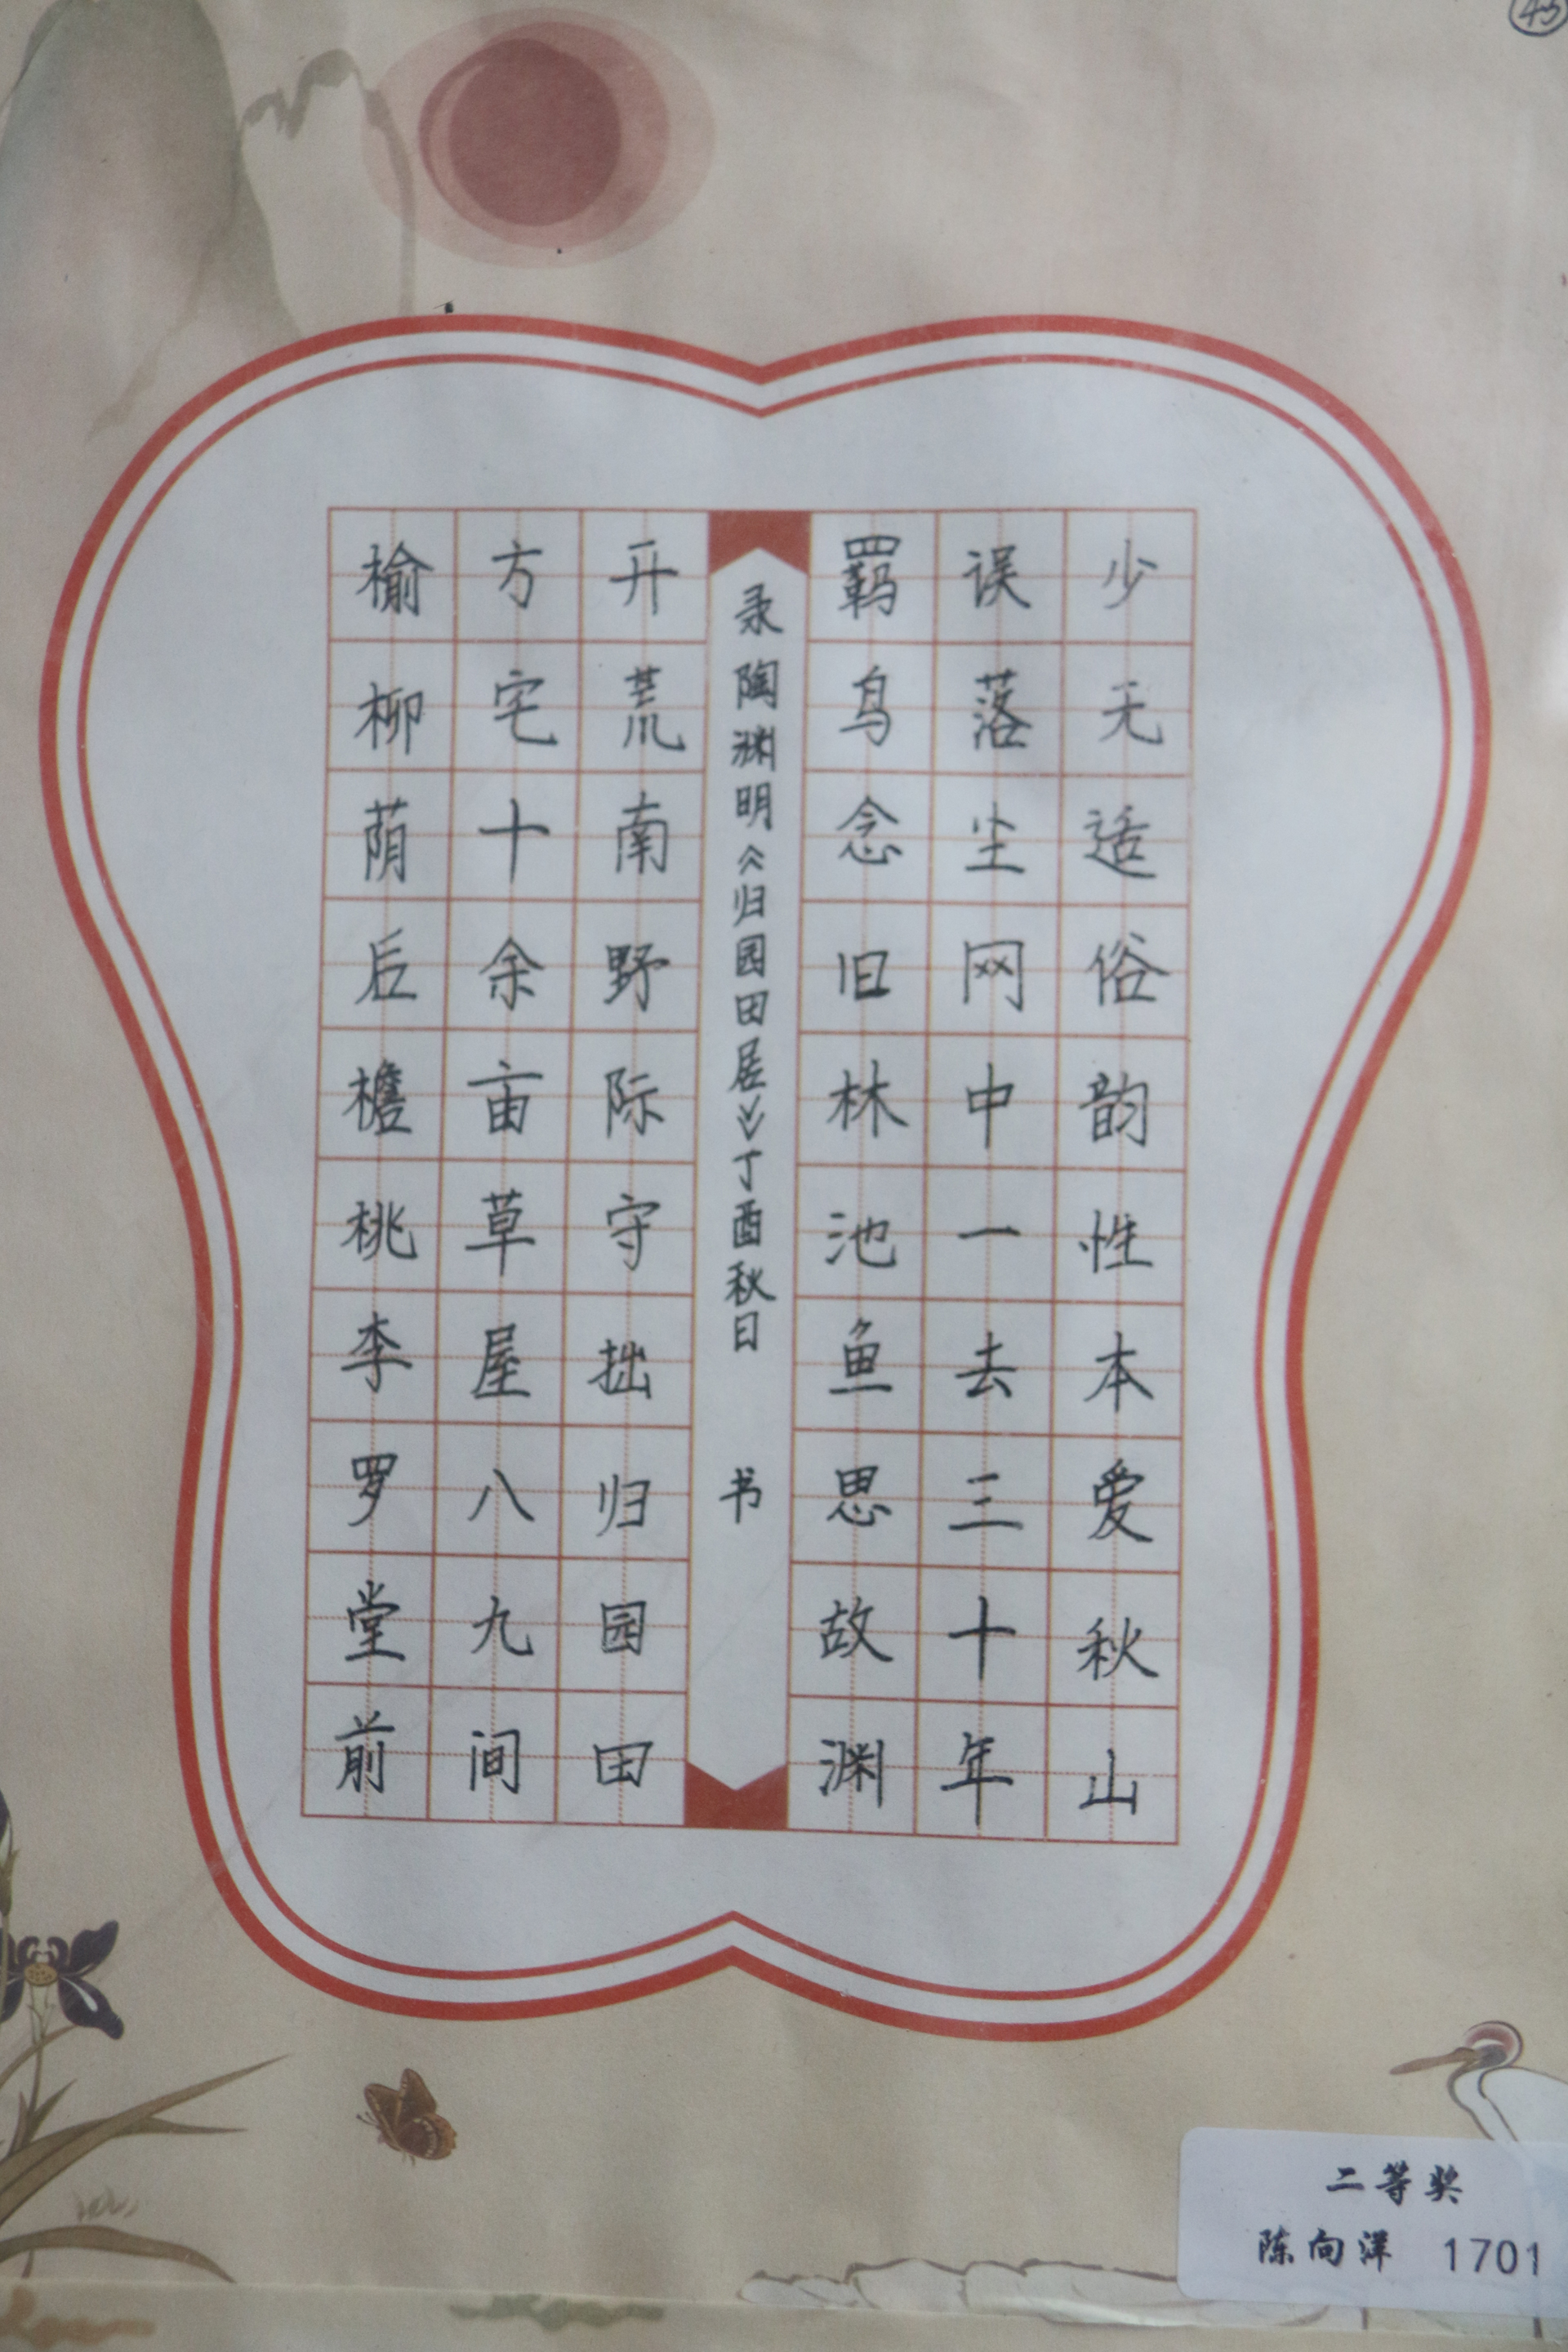 45
少无适俗韵性本爱秋山
误落尘网中一去三十年
羁鸟念旧林池鱼思故渊
录陶渊明《归园田居》丁酉秋日 书
开荒南野际守拙归园田
方宅十余亩草屋八九间
榆柳荫后檐桃李罗堂前
二等奖
陈向洋 1701